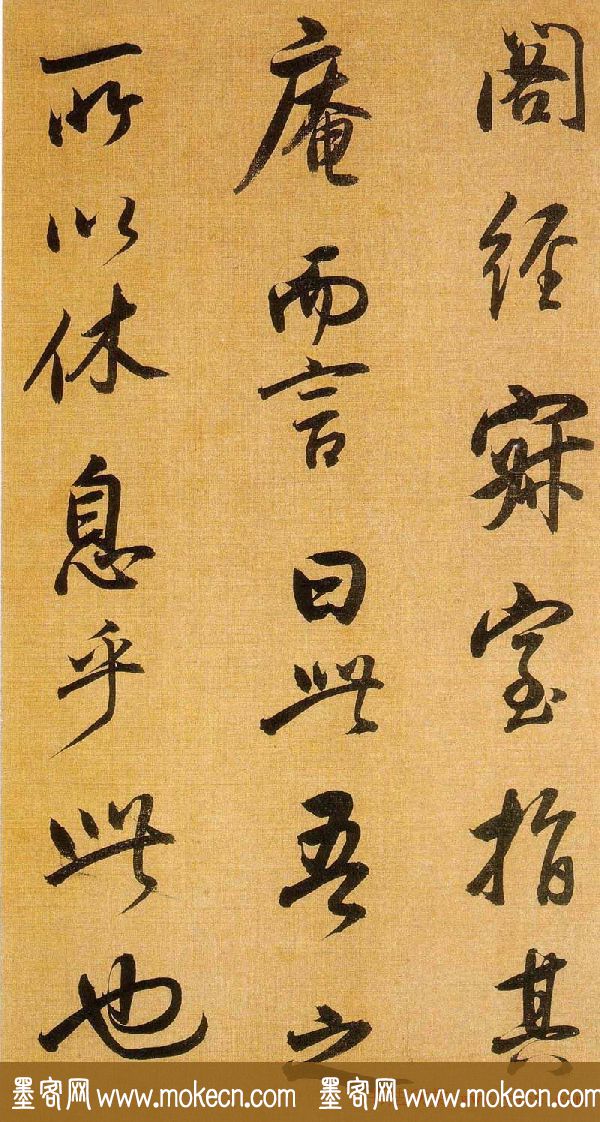 閣經室指其
庵而言曰此吾之
所以休息乎此也
墨客网 www.mokecn.com 墨客网 www.mokecn.com